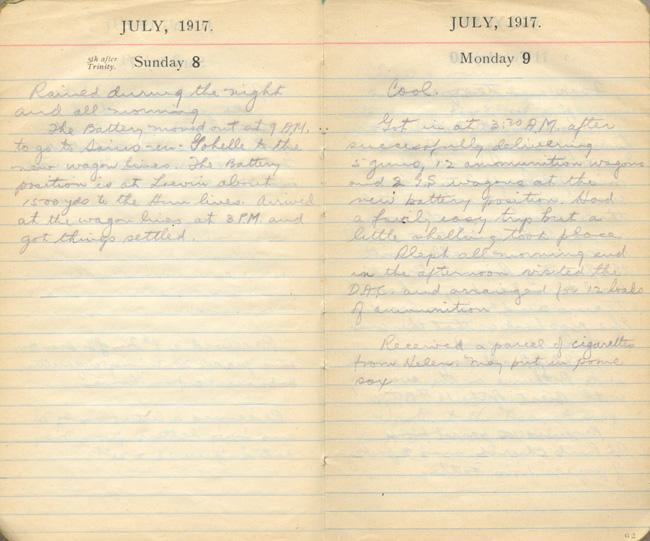 JULY, 1917.
5th after
Trinity.
Sunday 8
Rained during the night
and all morning
The Battery moved out at 9 A.M.
to go to Sains-en-Gohelle to the
new wagon lines. The Battery
position is at Loevin about
1500 yds to the Hun lines. Arrived
at the wagon lines at 3 P.M. and
got things settled.
JULY, 1917.
Monday 9
Cool.
Got in at 3:30 A.M. after
successfully delivering
5 guns, 12 ammunition wagons
and 2 G.S. wagons at the
new battery position. Had
a fairly easy trip but a
little shelling took place
Slept all morning and
in the afternoon visited the
D.A.C. and arranged for 12 loads
of ammunition
Received a parcel of cigarettes
from Helen. May put in some
sox